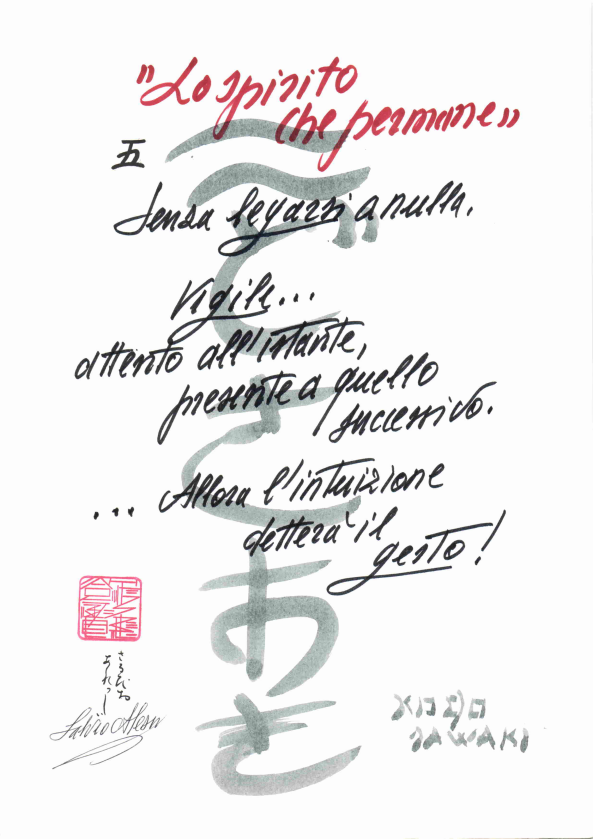 "Lo spirito
che permane"
五
Senza legarsi a nulla.
Vigile...
attento all'istante,
presente a quello
successivo.
... Allora l'intuizione
detterà il
gesto!
こどさわき
KODO
SAWAKI